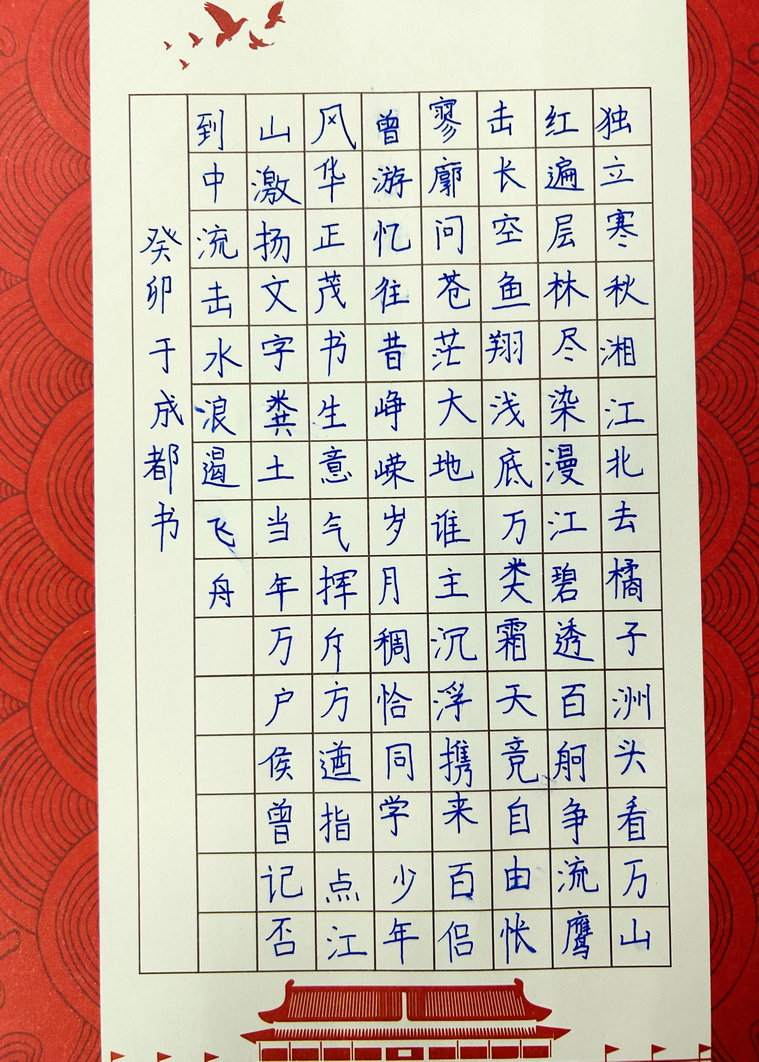 独立寒秋湘江北去橘子洲头看万山
红遍层林尽染漫江碧透百舸争流鹰
击长空鱼翔浅底万类霜天竞自由怅
寥廓问苍茫大地谁主沉浮携来百侣
曾游忆往昔峥嵘岁月稠恰同学少年
风华正茂书生意气挥斥方遒指点江
山激扬文字粪土当年万户侯曾记否
到中流击水浪遏飞舟
癸卯于成都书